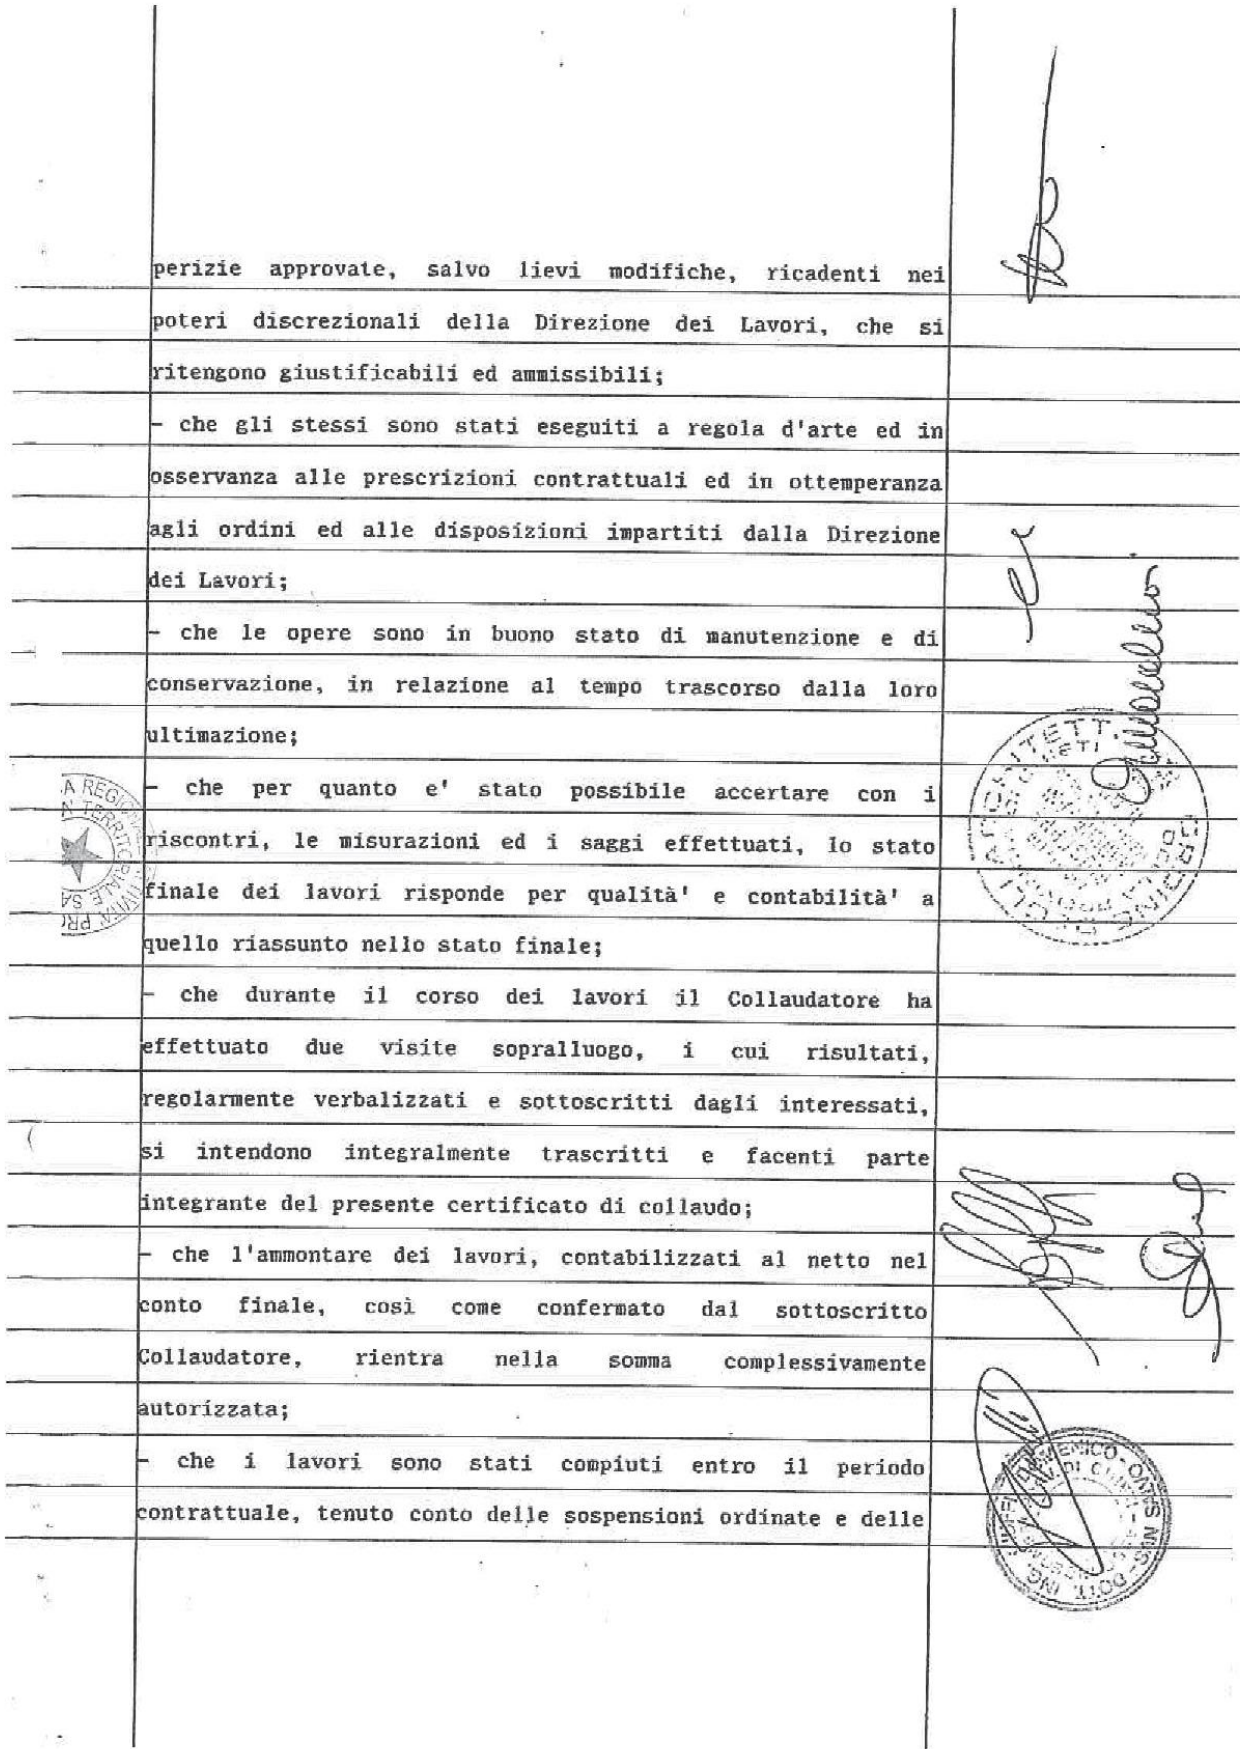 perizie approvate, salvo lievi modifiche, ricadenti nei
poteri discrezionali della Direzione dei Lavori, che si
ritengono giustificabili ed ammissibili;
- che gli stessi sono stati eseguiti a regola d'arte ed in
osservanza alle prescrizioni contrattuali ed in ottemperanza
agli ordini ed alle disposizioni impartiti dalla Direzione
dei Lavori;
- che le opere sono in buono stato di manutenzione e di
conservazione, in relazione al tempo trascorso dalla loro
ultimazione;
- che per quanto e' stato possibile accertare con i
riscontri, le misurazioni ed i saggi effettuati, lo stato
finale dei lavori risponde per qualità' e contabilità' a
quello riassunto nello stato finale;
- che durante il corso dei lavori il Collaudatore ha
effettuato due visite sopralluogo, i cui risultati,
regolarmente verbalizzati e sottoscritti dagli interessati,
si intendono integralmente trascritti e facenti parte
integrante del presente certificato di collaudo;
- che l'ammontare dei lavori, contabilizzati al netto nel
conto finale, così come confermato dal sottoscritto
Collaudatore, rientra nella somma complessivamente
autorizzata;
- che i lavori sono stati compiuti entro il periodo
contrattuale, tenuto conto delle sospensioni ordinate e delle